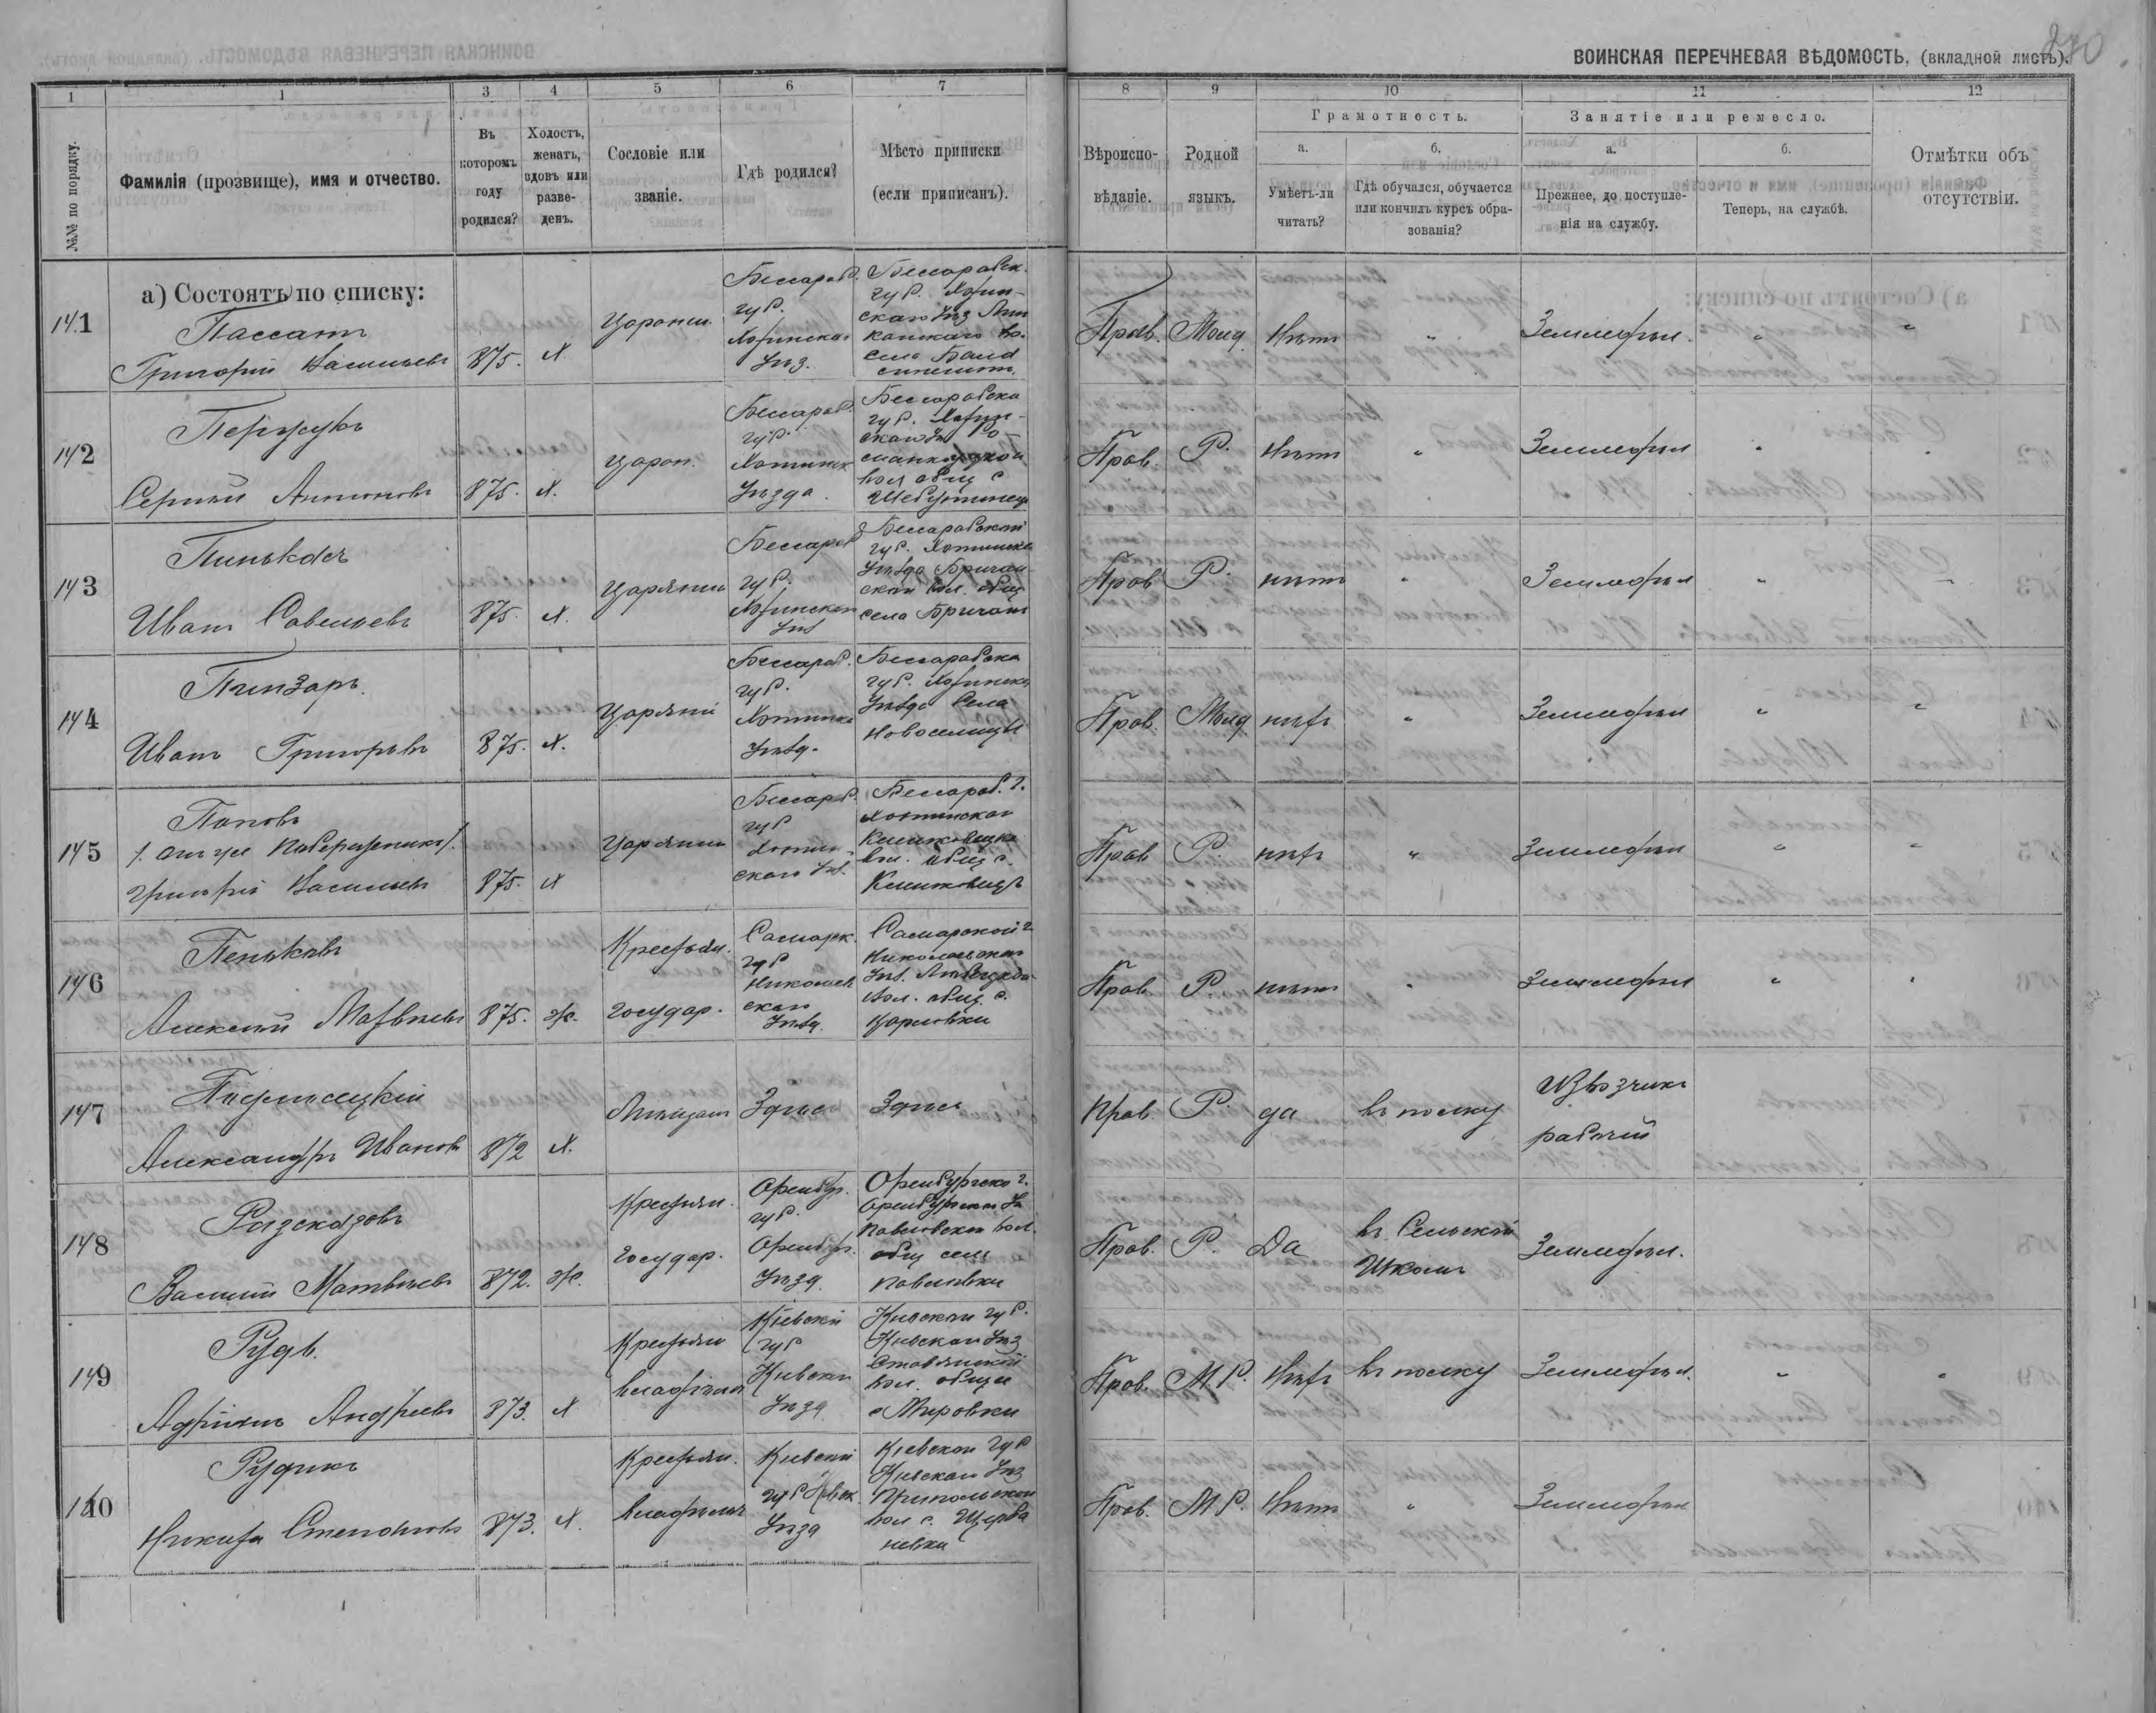 270
ВОИНСКАЯ ПЕРЕЧНЕВАЯ ВѢДОМОСТЬ, (вкладной листъ).
1 1 3 4 5 6 7 8 9 10 11 12
№№ по порядку.
Фамилія (прозвище), имя и отчество.
Въ которомъ году родился?
Холостъ, женатъ, вдовъ или разве-
денъ.
Сословіе или
званіе.
Гдѣ родился?
Мѣсто приписки
(если приписанъ).
Вѣроиспо-
вѣданіе.
Родной
языкъ.
Грамотность.
а.
Умѣетъ-ли
читать?
б.
Гдѣ обучался, обучается
или кончилъ курсъ обра-
зованія?
Занятіе или ремесло.
а.
Прежнее, до поступле-
нія на службу.
б.
Теперь, на службѣ.
Отмѣтки объ
отсутствіи.
а) Состоятъ по списку:
141
Пассатъ
Григорій Васильевъ
875. Х
Царанъ.
Бессараб.
губ.
Уѣз.
Бессарабск.
губ. Хотин-
скаго Уѣз
село
Прав. Молд. Нѣтъ " Земледѣл. " "
142
Сергѣй Антоновъ
875. Х.
Царан.
Бессараб.
губ.
Хотинск
Уѣзда.
Бессарабска
губ. Хотин-
скаго
вол общ с
Прав. Р. Нѣтъ " Земледѣл " "
143
Иванъ Савельевъ
875. Х.
Царанин
Бессараб
губ.
Хотинскаго
Уѣз
Бессарабской
губ. Хотинска
Уѣзда Бричан
ской вол. общ
села Бричанъ
Прав Р. нѣтъ " Земледѣл " "
144
Пинзаръ.
Иванъ Григорьевъ
875. Х.
Царани
Бессараб.
губ.
Хотинска
Уѣзд.
Бессарабска
губ. Хотинска
Уѣзда Села
Новоселицы
Прав. Молд. нѣтъ " Земледѣл " "
145
Поповъ
Григорій Васильевъ
875. Х
Царанин
Бессараб.
губ
Хотин-
скаго Уѣз.
Бессараб. г.
Хотинскаго
вол. общ с.
Прав Р. нѣтъ " Земледѣл " "
146
Пеньковъ
Алексѣй Матвѣевъ
875. Ж.
Крестьян.
государ.
Самарск.
губ
Николаев
скаго
Уѣзд.
Самарской г
Николаевскаго
Уѣз.
вол. общ. с.
Карловки
Прав. Р. нѣтъ " Земледѣл " "
147
Александръ Ивановъ
872 Х.
Мѣщан Здѣсь Здѣсь
Прав. Р. да въ полку
Извозчикъ
рабочій
148
Разсказовъ
Василій Матвѣевъ
872. Ж.
Крестьян.
государ.
Оренбур.
губ.
Оренбур.
Уѣзд.
Оренбургско г.
Оренбургскаго Уѣ
Павловской вол.
общ села
Павловки
Прав. Р. Да
въ Сельской
Школѣ
Земледѣл.
149
Рудь.
Адріанъ Андреевъ
873. Х
Крестьян
владѣльч
Кіевской
губ
Кіевска
Уѣзд
Кіевской губ.
Кіевскаго Уѣз
Ставянской
вол. общ
с Мировки
Прав. М.Р. Нѣтъ въ полку Земледѣл. " "
140
Рудикъ
Никита Степановъ
873. Х.
Крестьян.
владѣльч
Кіевской
губ Кіевск
Уѣзд
Кіевской губ
Кіевскаго Уѣз
Трипольской
вол с. Щерба
невки
Прав. М.Р. Нѣтъ " Земледѣл